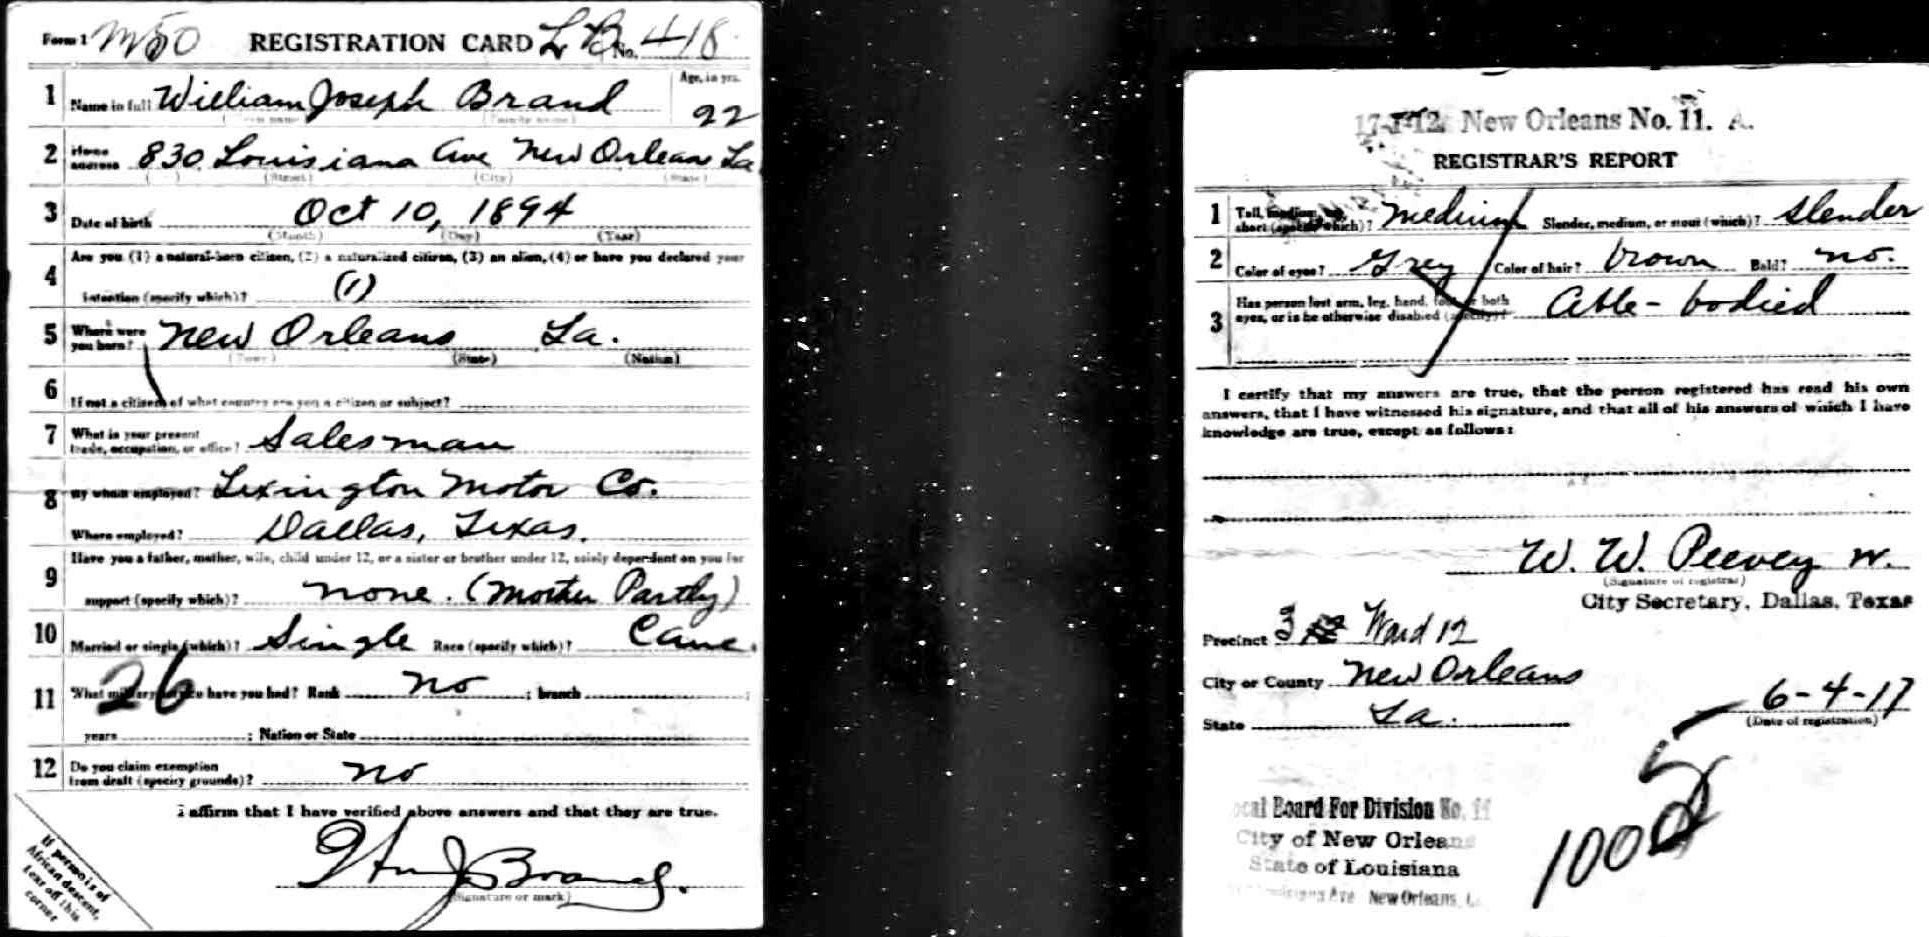 Form 1 M50 REGISTRATION CARD L B No. 418
1 Name in full William Joseph Brand Age, in yrs. 22
(Family name)
2 Home address 830 Louisiana Ave New Orleans La
(Street) (City) (State)
3 Date of birth Oct 10, 1894
(Month) (Day) (Year)
4 Are you (1) a natural-born citizen, (2) a naturalized citizen, (3) an alien, (4) or have you declared your
intention (specify which)? (1)
5 Where were you born? New Orleans La.
(Town) (State) (Nation)
6 If not a citizen of what country are you a citizen or subject?
7 What is your present
trade, occupation, or office? Salesman
8 By whom employed? Lexington Motor Co.
Where employed? Dallas, Texas.
9 Have you a father, mother, wife, child under 12, or a sister or brother under 12, solely dependent on you for
support (specify which)? none. (Mother Partly)
10 Married or single (which)? Single Race (specify which)? Cauc.
26
11 What military service have you had? Rank no ; branch ;
years ; Nation or State
12 Do you claim exemption
from draft (specify grounds)? no
I affirm that I have verified above answers and that they are true.
Wm J Brand.
(Signature or mark)
If person is of
African descent,
tear off this
corner
17-1-12. New Orleans No. 11. A.
REGISTRAR'S REPORT
1 Tall, medium, or
short (specify which)? medium Slender, medium, or stout (which)? slender
2 Color of eyes? Grey Color of hair? brown Bald? no.
3 Has person lost arm, leg, hand, foot, or both
eyes, or is he otherwise disabled (specify)? Able-bodied
I certify that my answers are true, that the person registered has read his own
answers, that I have witnessed his signature, and that all of his answers of which I have
knowledge are true, except as follows:
W. W. Peevey
(Signature of registrar)
City Secretary, Dallas, Texas
Precinct 3 Ward 12
City or County New Orleans
State La.
6-4-17
(Date of registration)
Local Board For Division No. 11
City of New Orleans
State of Louisiana
Louisiana Ave New Orleans, La
1005